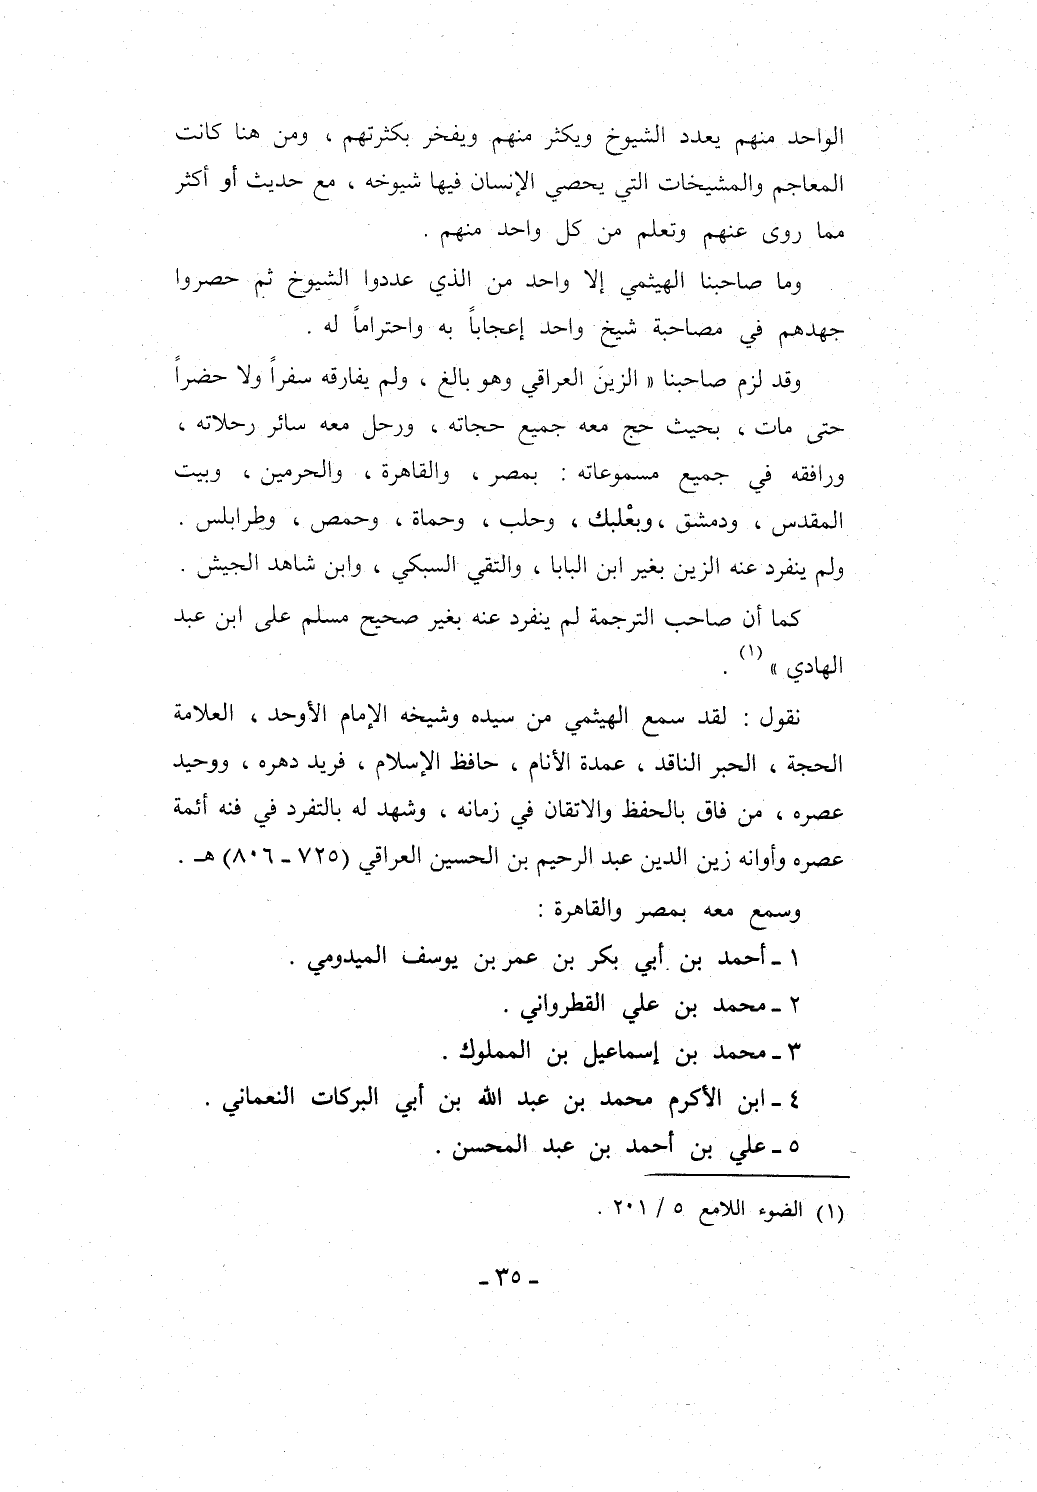 الواحد منهم يعدد الشيوخ ويكثر منهم ويفخر بكثرتهم ، ومن هنا كانت
المعاجم والمشيخات التي يحصي الإنسان فيها شيوخه ، مع حديث أو أكثر
مما روى عنهم وتعلم من كل واحد منهم .
وما صاحبنا الهيثمي إلا واحد من الذي عددوا الشيوخ ثم حصروا
جهدهم في مصاحبة شيخ واحد إعجاباً به واحتراماً له .
وقد لزم صاحبنا « الزينَ العراقي وهو بالغ ، ولم يفارقه سفراً ولا حضراً
حتى مات ، بحيث حج معه جميع حجاته ، ورحل معه سائر رحلاته ،
ورافقه في جميع مسموعاته : بمصر ، والقاهرة ، والحرمين ، وبيت
المقدس ، ودمشق ، وبعْلبك ، وحلب ، وحماة ، وحمص ، وطرابلس .
ولم ينفرد عنه الزين بغير ابن البابا ، والتقي السبكي ، وابن شاهد الجيش .
كما أن صاحب الترجمة لم ينفرد عنه بغير صحيح مسلم على ابن عبد
الهادي » (١) .
نقول : لقد سمع الهيثمي من سيده وشيخه الإمام الأوحد ، العلامة
الحجة ، الحبر الناقد ، عمدة الأنام ، حافظ الإسلام ، فريد دهره ، ووحيد
عصره ، من فاق بالحفظ والاتقان في زمانه ، وشهد له بالتفرد في فنه أئمة
عصره وأوانه زين الدين عبد الرحيم بن الحسين العراقي (٧٢٥ ـ ٨٠٦) هـ .
وسمع معه بمصر والقاهرة :
١ ـ أحمد بن أبي بكر بن عمر بن يوسف الميدومي .
٢ ـ محمد بن علي القطرواني .
٣ ـ محمد بن إسماعيل بن المملوك .
٤ ـ ابن الأكرم محمد بن عبد الله بن أبي البركات النعماني .
٥ ـ علي بن أحمد بن عبد المحسن .
(١) الضوء اللامع ٥ / ٢٠١ .
ـ ٣٥ ـ